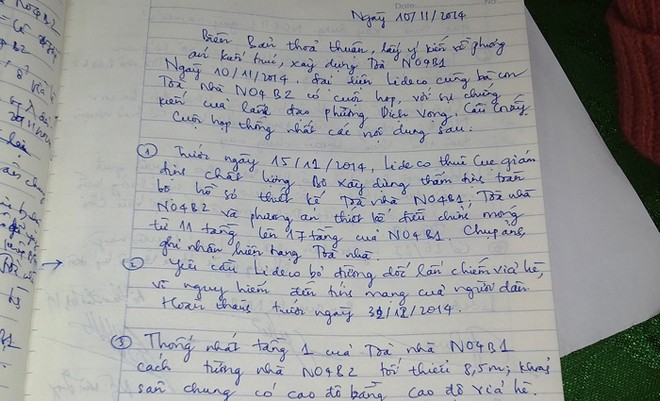 Ngày 10/11/2014
Biên Bản thoả thuận, lấy ý kiến về phương
án kiến trúc, xây dựng Toà NO4B1
Ngày 10/11/2014. Đại diện Lideco cùng bà con
Toà nhà NO4B2 có cuộc họp, với sự chứng
kiến của lãnh đạo phường Dịch Vọng, Cầu Giấy.
Cuộc họp thống nhất các nội dung sau.
① Trước ngày 15/12/2014, Lideco thuê Cục giám
định chất lượng Bộ xây dựng thẩm định toàn
bộ hồ sơ thiết kế Toà nhà NO4B1; Toà nhà
NO4B2 và phương án thiết kế điều chỉnh móng
từ 11 tầng lên 17 tầng của NO4B1. Chụp ảnh,
ghi nhận hiện trạng Toà nhà.
② Yêu cầu Lideco bỏ đường dốc lấn chiếm vỉa hè,
vì nguy hiểm đến tính mạng của người dân.
Hoàn thành trước ngày 31/12/2014.
③ Thống nhất tầng 1 của Toà nhà NO4B1
cách tường nhà NO4B2 tối thiểu 8,5m; khoả
sân chung có cao độ bằng cao độ vỉa hè.